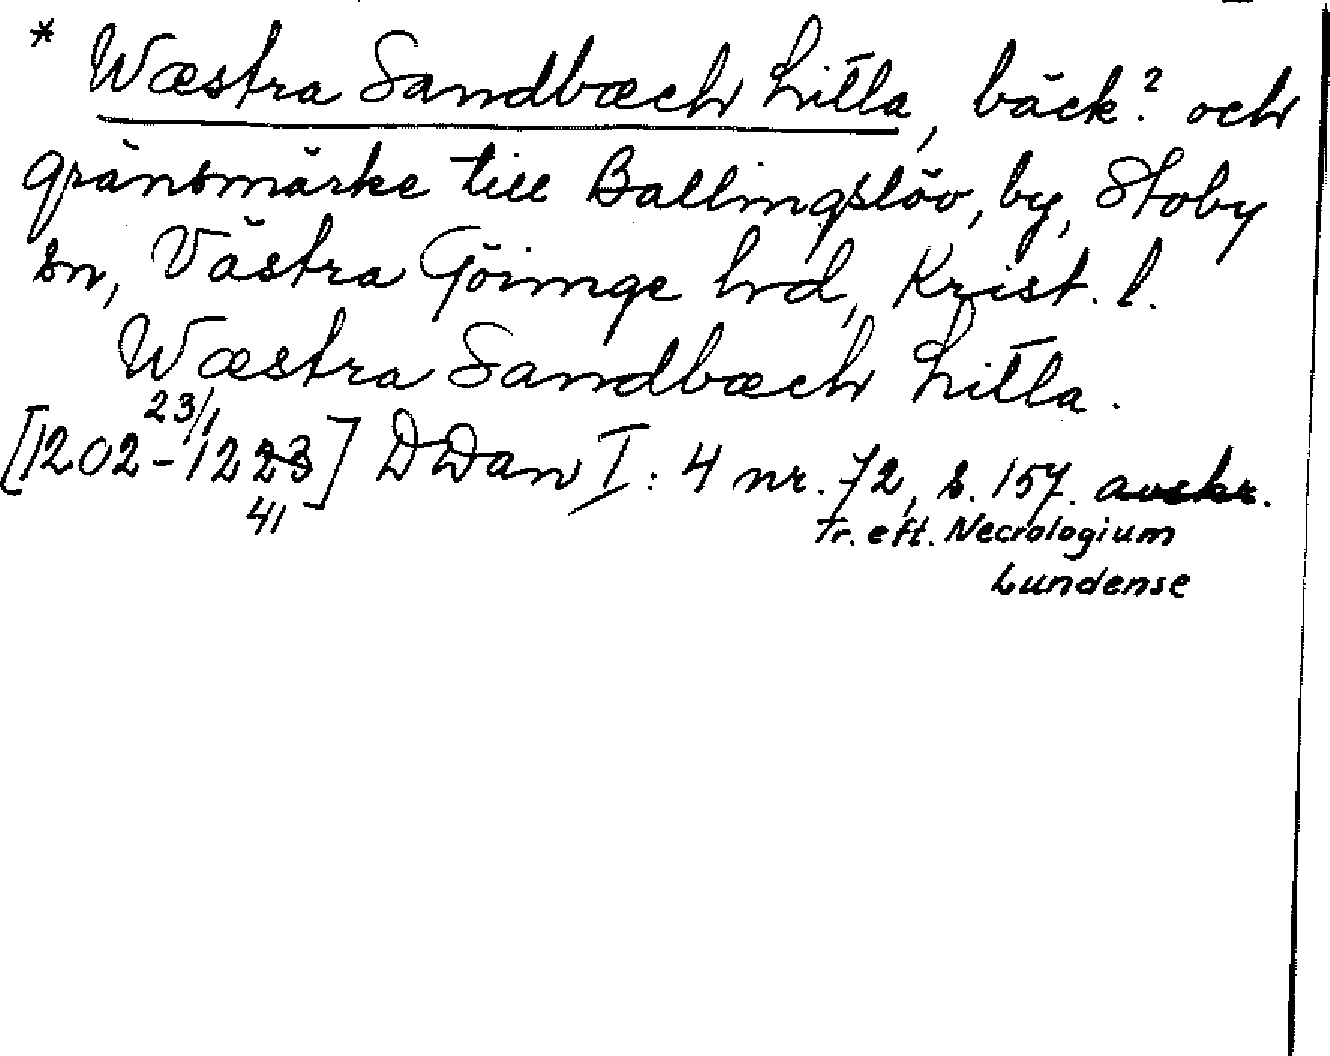 * Wæstra Sandbæch Litla, bäck? och
gränsmärke till Ballingslöv, by, Stoby
sn, Västra Göinge hd, Krist. l.
Wæstra Sandbæch Litla.
23/1
[1202-1223] DDan I: 4 nr. 72, s. 157. avskr.
41
Tr. eft. Necrologium
Lundense